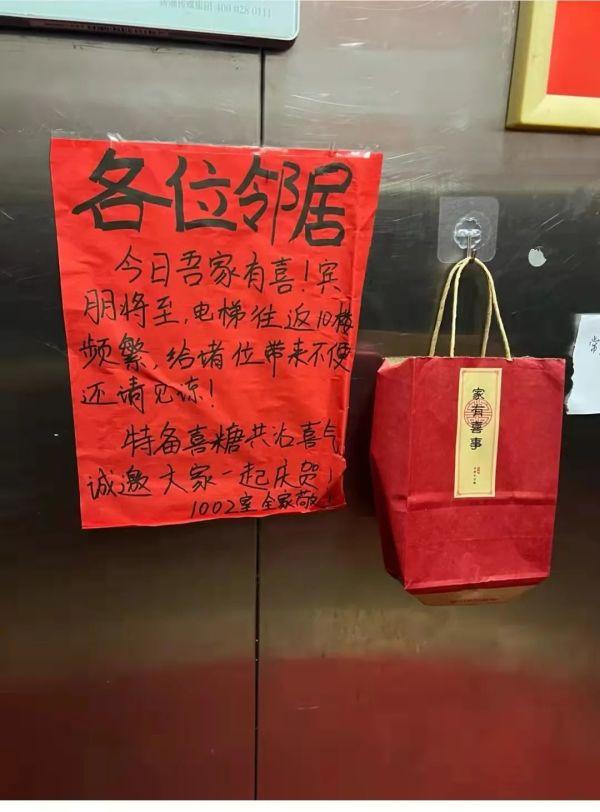 各位邻居
今日吾家有喜！宾
朋将至，电梯往返10楼
频繁，给堵位带来不便
还请见谅！
特备喜糖共沾喜气
诚邀大家一起庆贺！
1002室 全家敬！
家有喜事